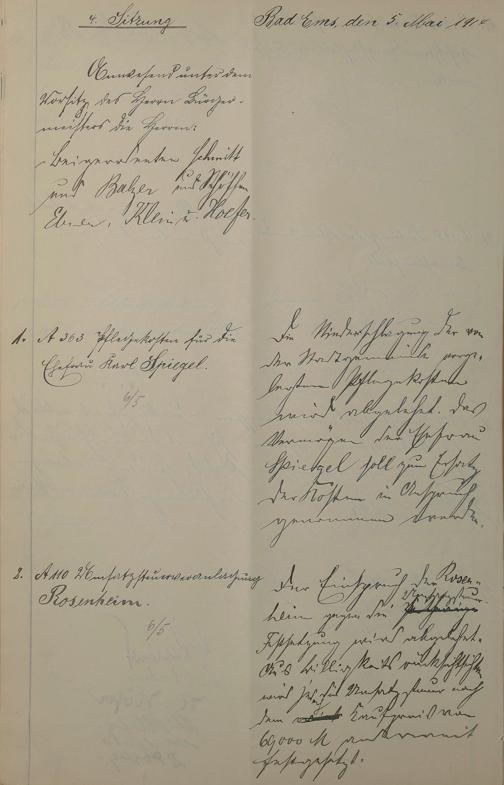 4. Sitzung
Bad Ems, den 5. Mai 191
Anwesend unter dem
Vorsitz des Herrn Bürger-
meisters die Herren:
Beigeordneten Schmitt
und Balzer und Schöffen
Ebner, Klein u. Hoefer.
1. A 363 Pflegekosten für die
Ehefrau Karl Spiegel.
6/5
Die Niederschlagung der von
der Stadtgemeinde vorge-
legten Pflegekosten
wird abgelehnt. Das
Vermögen der Ehefrau
Spiegel soll zum Ersatz
der Kosten in Anspruch
genommen werden.
2. A 110 Umsatzsteuerveranlagung
Rosenheim.
6/5
Der Einspruch der Rosen-
heim gegen die Umsatzsteuer
Festsetzung wird abgelehnt.
Aus Billigkeitsrücksichten
wird die Umsatzsteuer nach
dem Kaufpreis von
69000 M anderweit
festgesetzt.